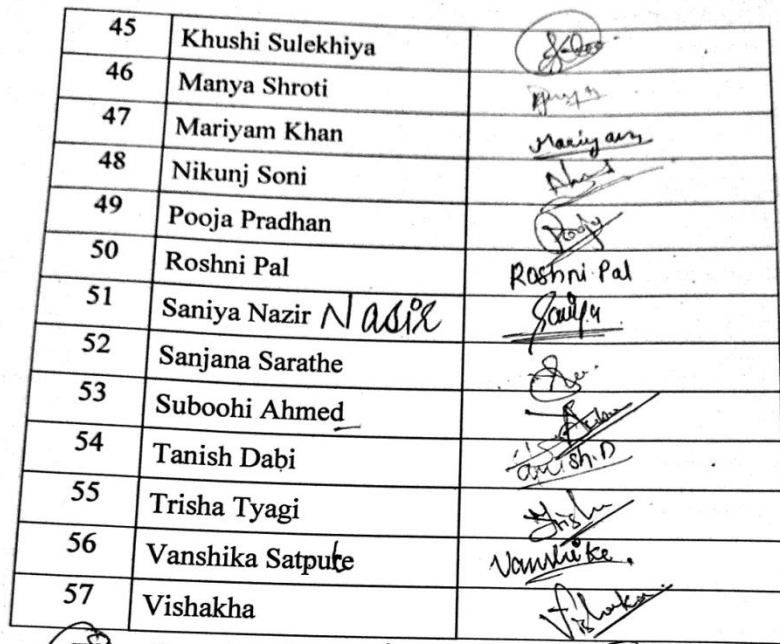 45 Khushi Sulekhiya
46 Manya Shroti
47 Mariyam Khan Mariyam
48 Nikunj Soni
49 Pooja Pradhan Pooja
50 Roshni Pal Roshni Pal
51 Saniya Nazir Nasir Saniya
52 Sanjana Sarathe
53 Suboohi Ahmed
54 Tanish Dabi Tanish.D
55 Trisha Tyagi Trisha
56 Vanshika Satpute Vanshika.
57 Vishakha Vishakha